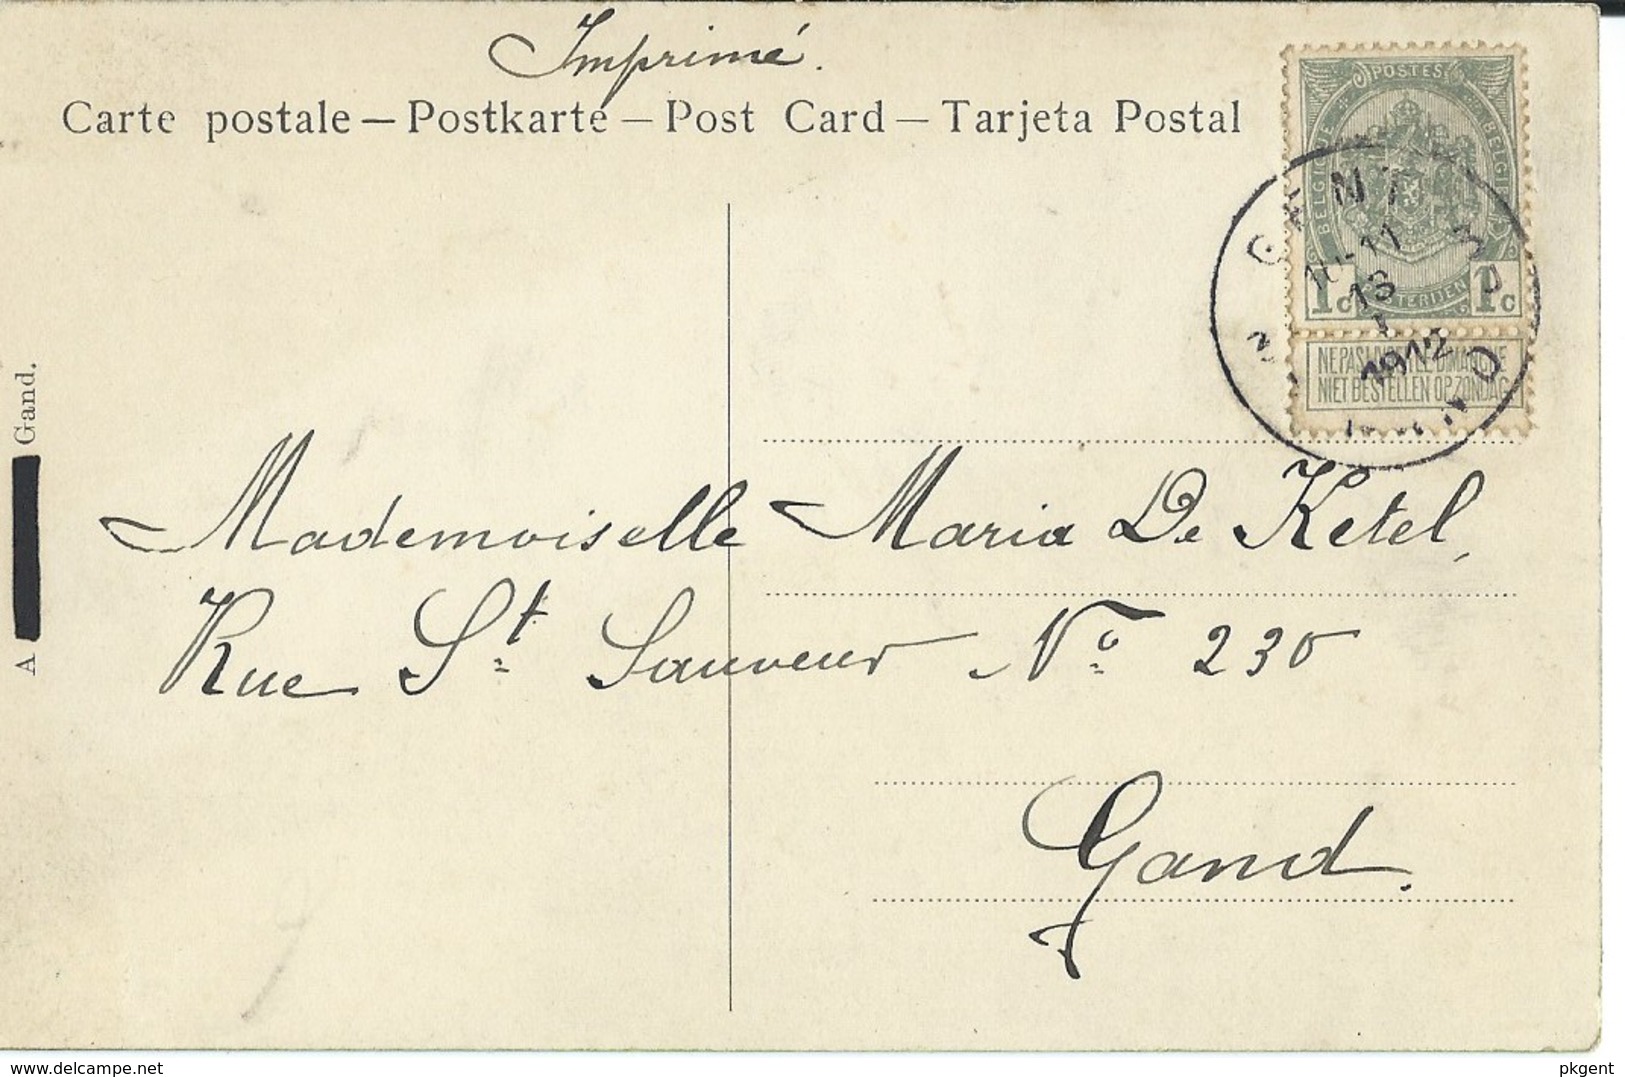 Imprimé.
Carte postale — Postkarte — Post Card — Tarjeta Postal
POSTES
BELGIQUE BELGIË
1c 1c
NE PAS LIVRER LE DIMANCHE
NIET BESTELLEN OP ZONDAG
GENT
10-11
1912
GAND
A Gand.
Mademoiselle Maria De Ketel,
Rue St Sauveur No 230
Gand.
delcampe.net
pkgent